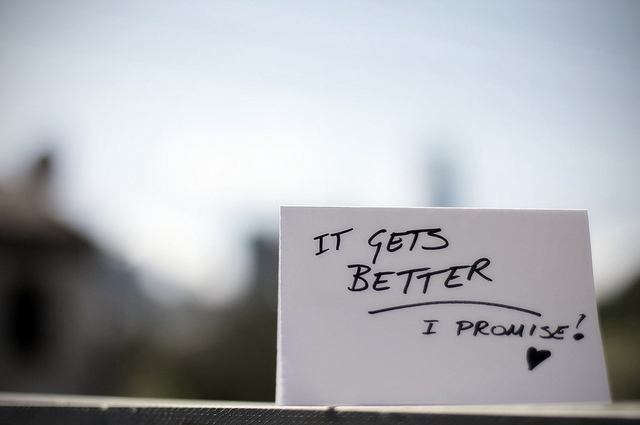 IT GETS
BETTER
I PROMISE!